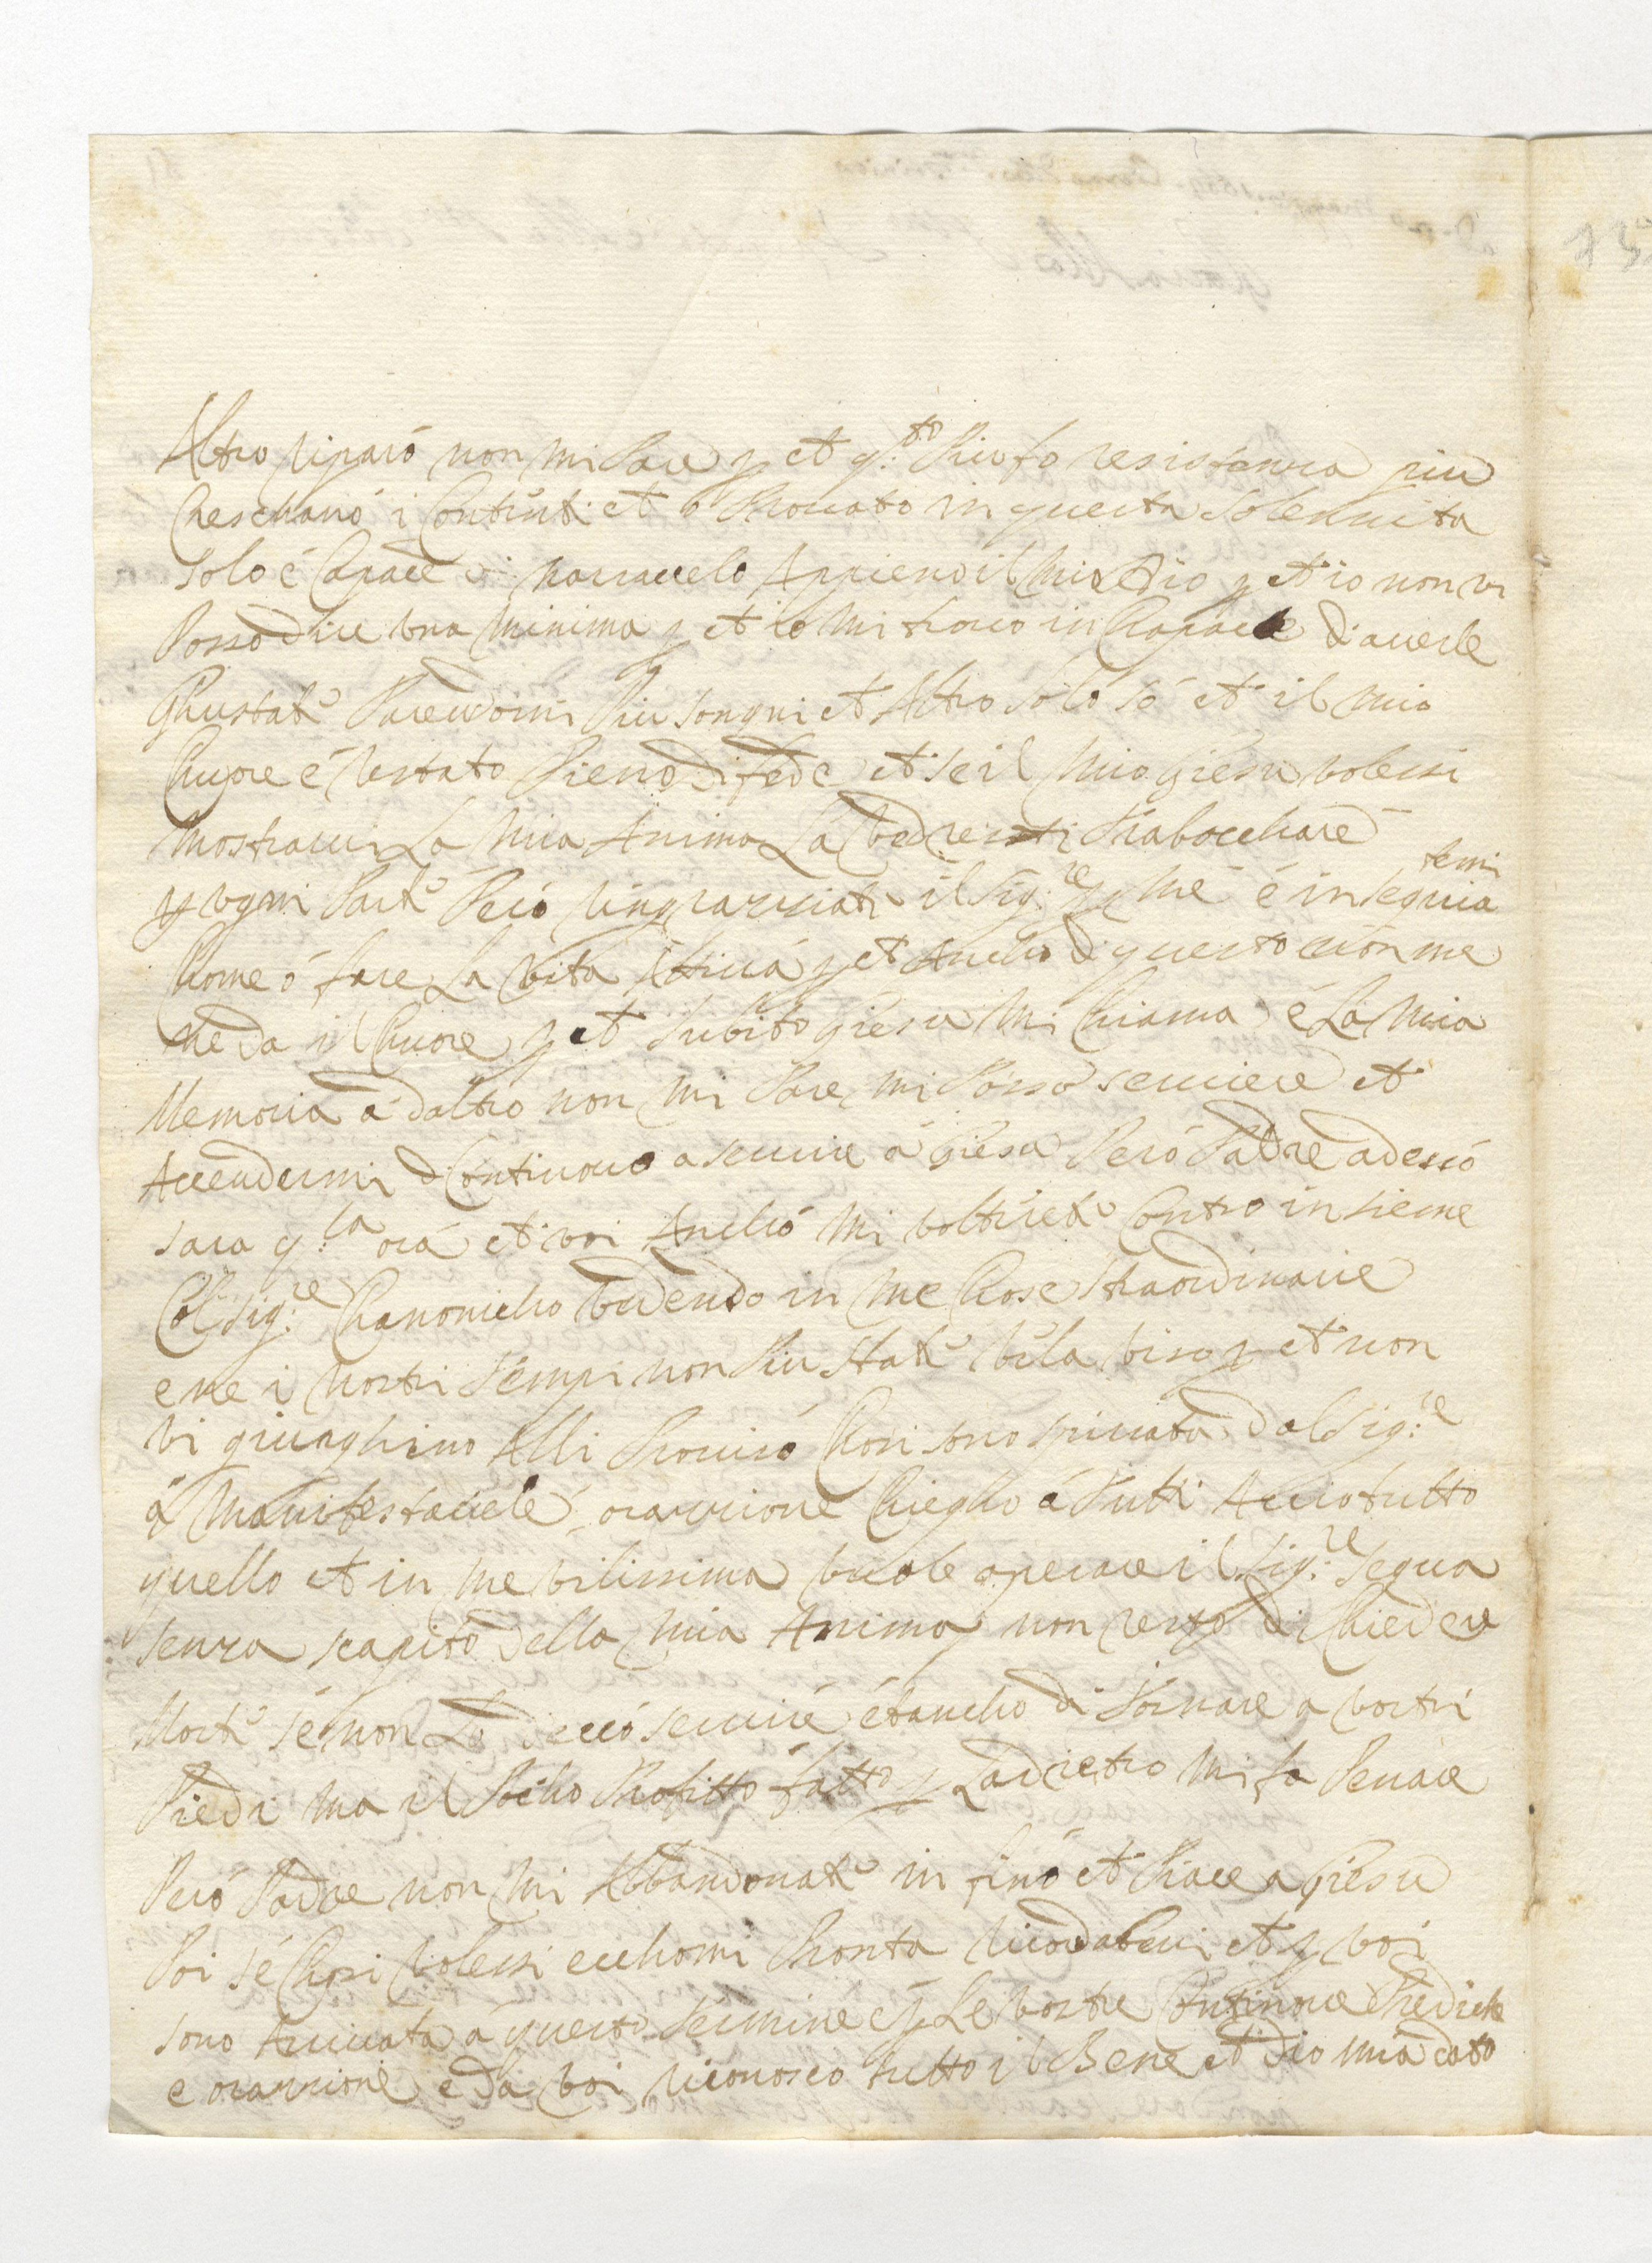 Altro riparo non mi Pare p et q.to Piu fo resistenza piu
Creschano i Contenti et o Provato in questa Solennita
Solo é Capace di narrauelo Appieno il mio Dio p et io non vi
Posso dire una minima p et io mi trovo in Chapace di auerle
Ghustate Parendomi Piu songni et Altro Solo só et il mio
Chuore é restato Pieno di fede et se il mio giesu volessi
mostrarui La mia Anima La vedresti Trabocchare
p ogni Parte Peró ringrazziate il Sig:re p me é insegnia temi
Chome ó fare La vita Attiua p et Ancho di questo non me
ne da il Chuore p et Subito giesu mi Chiama é La mia
Memoria a daltro non mi Pare mi Posso seruire et
Accendermi di Continouo a seruire a Giesu Peró Padre adessó
sara q:la ora et voi Anchó mi voltirete Contro insieme
Col Sig:re Chanonicho vedendo in me Chose straordinarie
e ne i nostri Tempi non Piu state vi la viso p et non
vi giunghino Alli Proviso Chosi sono spirata dal Sig:re
a Manifestauele orazzione Chiegho á Tutti Accio tutto
quello et in me vilissima vuole operare il Sig:re segua
senza scapito della mia Anima non resto di Chiedere
Morte sé non Lo deccó seruire é ancho di Tornare a vostri
Piedi ma il Pocho Profitto fatto p Ladietro mi fa Penare
Peró Padre non mi Abbandonate in finó et Piace a Giesu
Poi sé Chosi volessi ecchomi Pronta ricordateui et p voi
sono Arriuata a questo Termine é p Le vostre Continoue Prediche
e orazzione e da voi riconosco tutto il Bene et dio mia dato